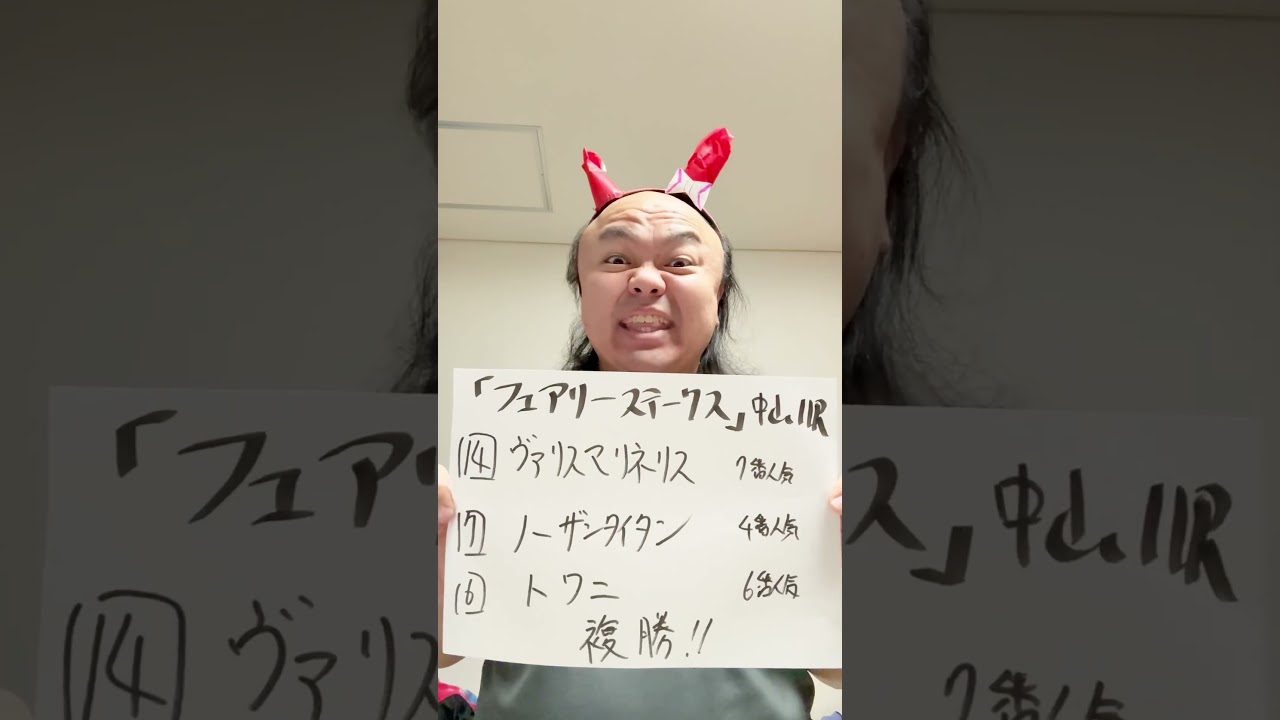 「フェアリーステークス」中山11R
14 ヴァリスマリネリス 7番人気
17 ノーザンタイタン 4番人気
16 トワニ 6番人気
複勝!!